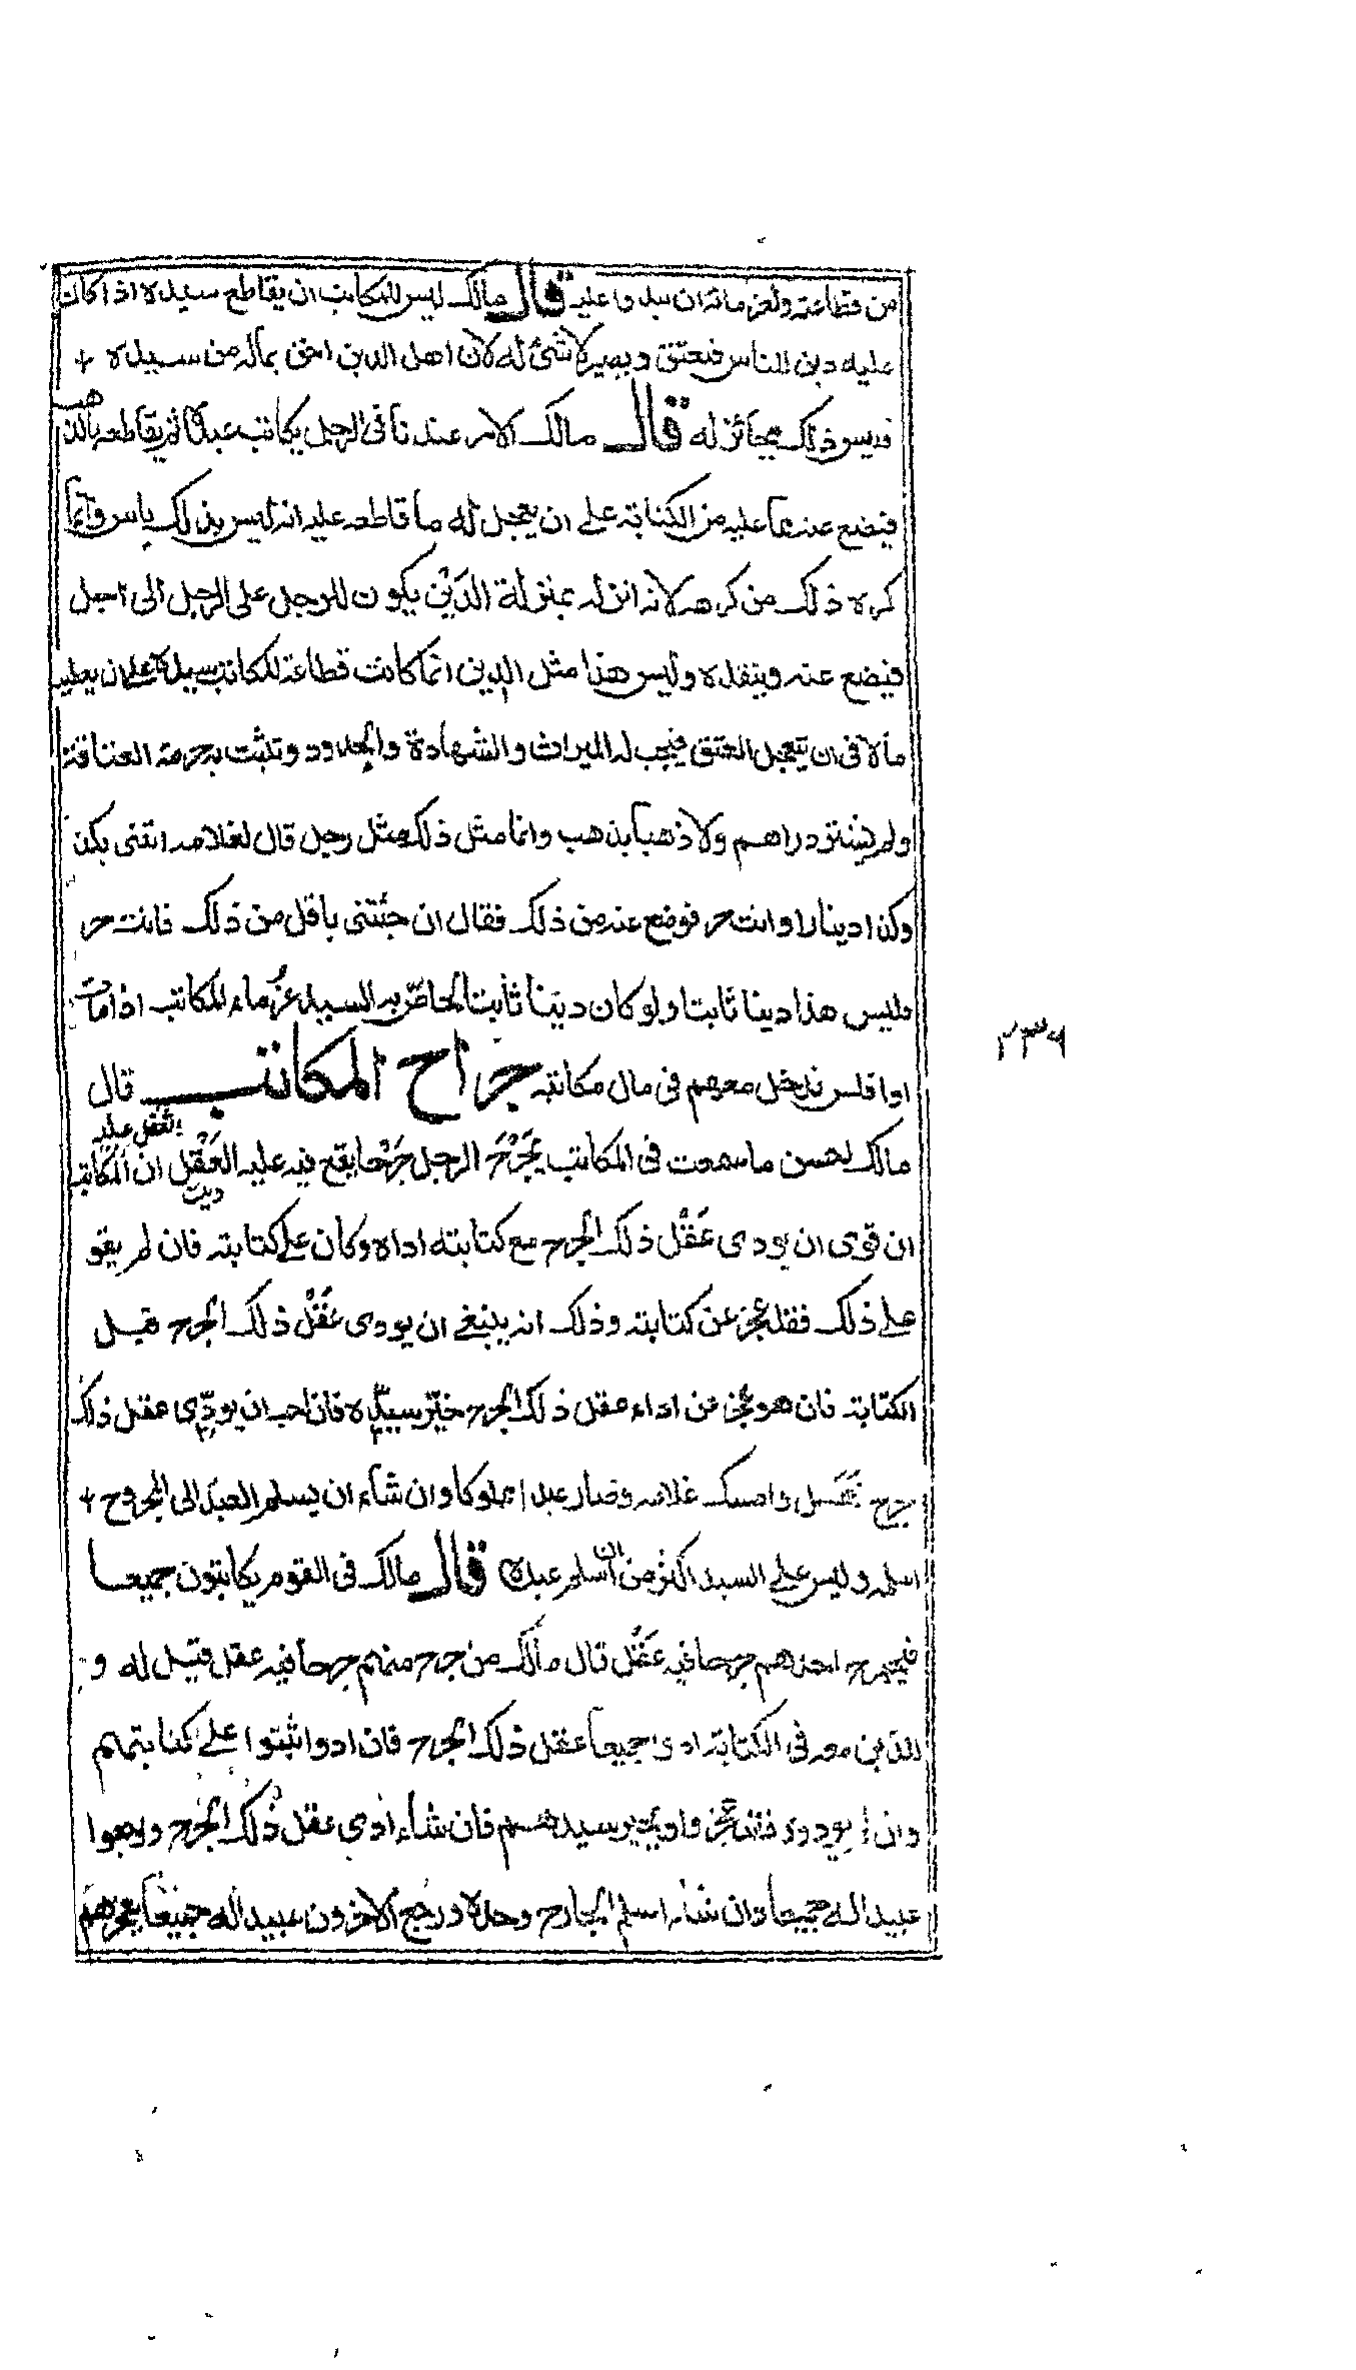 من قطاعته ولغرمائه ان يبدوا عليه قال مالك ليس للمكاتب ان يقاطع سيده اذا كان
عليه دين للناس فيعتق ويصير لا شئ له لان اهل الدين احق بماله من سيده
فليس ذلك بجائز له قال مالك الامر عندنا في الرجل يكاتب عبده ثم يقاطعه بالذهب
فيضع عنه مما عليه من الكتابة على ان يعجل له ما قاطعه عليه انه ليس بذلك باس وانما
كره ذلك من كرهه لانه انزله بمنزلة الدَين يكون للرجل على الرجل الى اجل
فيضع عنه وينقده وليس هذا مثل الدين انما كانت قطاعة المكاتب سيده على ان يعطيه
مالا في ان يتعجل العتق فيجب له الميراث والشهادة والحدود وتثبت به حرمة العتاقة
ولم يشتر دراهم ولا ذهبا بذهب وانما مثل ذلك مثل رجل قال لغلامه ائتنى بكذا
وكذا دينارا وانت حر فوضع عنه من ذلك فقال ان جئتنى باقل من ذلك فانت حر
فليس هذا دينا ثابتا ولو كان دينا ثابتا لحاصّ به السيد غرماء المكاتب اذا مات
او افلس فدخل معهم في مال مكاتبه جراح المكاتب قال
مالك احسن ما سمعت في المكاتب يَجْرَحُ الرجل جَرْحا يقع فيه عليه العَقْل ان المكاتب
ان قوى ان يودى عَقْل ذلك الجرح مع كتابته اداه وكان على كتابته فان لم يقو
على ذلك فقد عجز عن كتابته وذلك انه ينبغى ان يودى عَقْل ذلك الجرح قبل
الكتابة فان هو عجز عن اداء عقل ذلك الجرح خيّر سيّده فان احب ان يودّى عقل ذلك
جرح فعل وامسك غلامه وصار عبدا مملوكا وان شاء ان يسلم العبد الى المجروح
اسلمه وليس على السيد اكثر من ان اسلم عبده قال مالك في القوم يكاتبون جميعا
فيجرح احدهم جرحا فيه عَقْل قال مالك من جرح منهم جرحا فيه عقل قيل له و
للذين معه في الكتابة ادوا جميعا عقل ذلك الجرح فان ادوا ثبتوا على كتابتهم
وان لم يودوه فقد عجزوا ويخير سيدهم فان شاء ادى عقل ذلك الجرح ورجعوا
عبيدا له جميعا وان شاء اسلم الجارح وحده ورجع الاخرون عبيدا له جميعا بعجزهم
٢٣٦